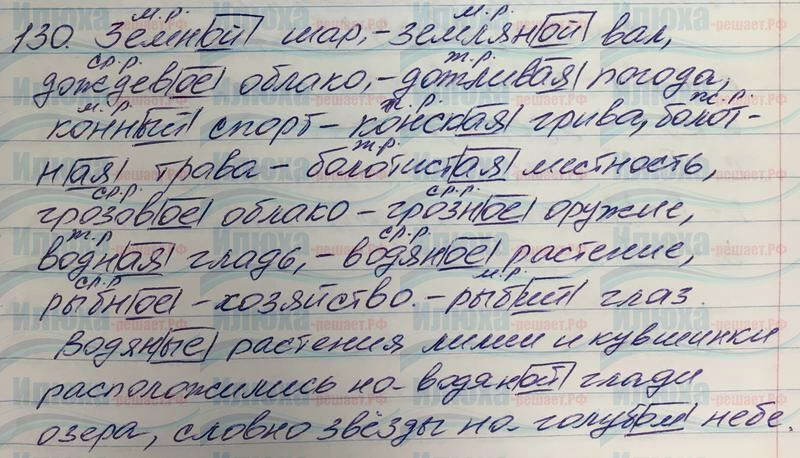 130. Земной м.р. шар, - земляной м.р. вал,
дождевое ср.р. облако, - дождливая ж.р. погода,
конный м.р. спорт - конская ж.р. грива, болот- ж.р.
ная трава - болотистая ж.р. местность,
грозовое ср.р. облако - грозное ср.р. оружие,
водная ж.р. гладь, - водяное ср.р. растение,
рыбное ср.р. - хозяйство. - рыбий м.р. глаз.
Водяные растения лилии и кувшинки
расположились на водяной глади
озера, словно звёзды на голубом небе.